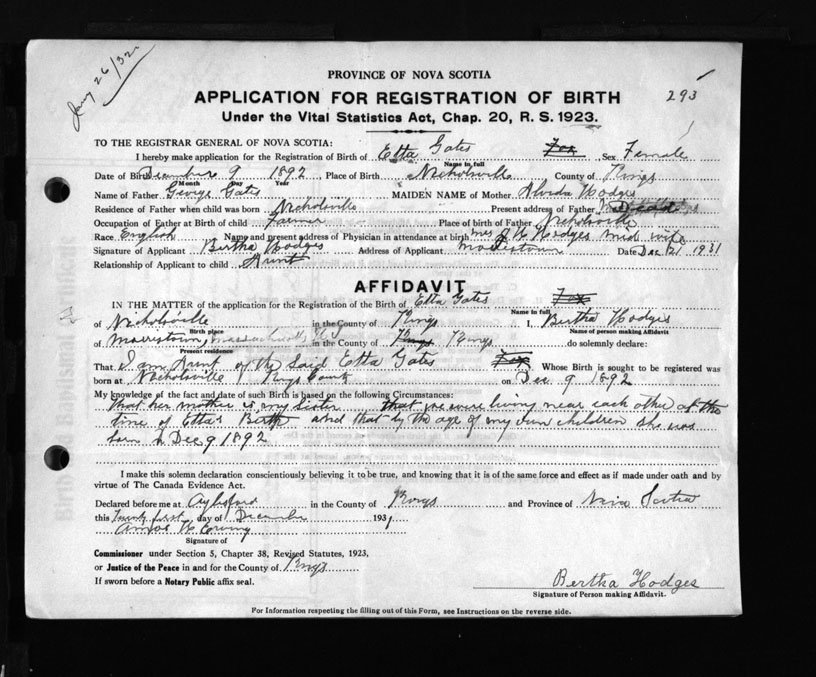 Jany 26/32
PROVINCE OF NOVA SCOTIA
APPLICATION FOR REGISTRATION OF BIRTH 293
Under the Vital Statistics Act, Chap. 20, R. S. 1923.
TO THE REGISTRAR GENERAL OF NOVA SCOTIA:
I hereby make application for the Registration of Birth of Etta Gates Fox Sex Female
Name in full
Date of Birth December 9 1892 Place of Birth Nicholsville County of Kings
Month Day Year
Name of Father George Gates MAIDEN NAME of Mother Hodges
Residence of Father when child was born Nicholsville Present address of Father Dead
Occupation of Father at Birth of child Farmer Place of birth of Father Nicholsville
Race English Name and present address of Physician in attendance at birth Mrs Hodges mid wife
Signature of Applicant Bertha Hodges Address of Applicant Morristown Date Dec 21 1931
Relationship of Applicant to child Aunt
AFFIDAVIT
IN THE MATTER of the application for the Registration of the Birth of Etta Gates Fox
Name in full
of Nicholsville in the County of Kings I, Bertha Hodges
Birth place Name of person making Affidavit
of Morristown, Massachusetts in the County of Kings Kings do solemnly declare:
Present residence
That I am Aunt of the Said Etta Gates Fox Whose Birth is sought to be registered was
born at Nicholsville Kings County on Dec 9 1892
My knowledge of the fact and date of such Birth is based on the following Circumstances:
that her mother is my Sister that we were living near each other at the
time of Etta's Birth and that by the age of my own children she was
born Dec 9 1892
I make this solemn declaration conscientiously believing it to be true, and knowing that it is of the same force and effect as if made under oath and by
virtue of The Canada Evidence Act.
Declared before me at Aylesford in the County of Kings and Province of Nova Scotia
this Twenty first day of December 1931
Amos
Signature of
Commissioner under Section 5, Chapter 38, Revised Statutes, 1923,
or Justice of the Peace in and for the County of Kings
If sworn before a Notary Public affix seal.
Bertha Hodges
Signature of Person making Affidavit.
For Information respecting the filling out of this Form, see Instructions on the reverse side.